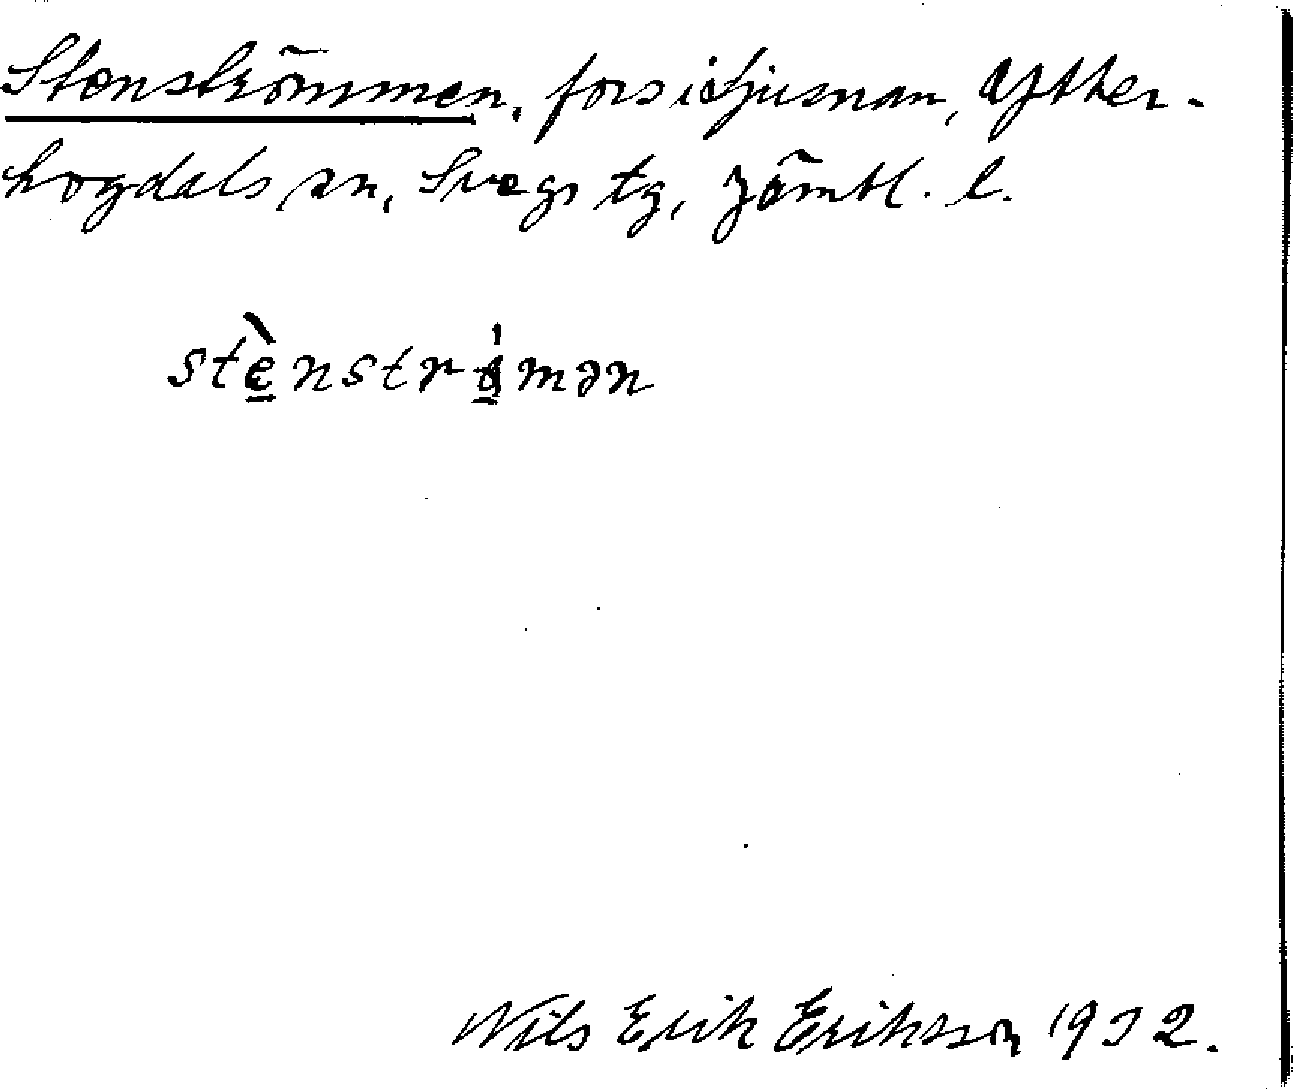 Stenströmmen, fors i Ljusnan, Ytter-
hogdals sn, Svegs tg, Jämtl. l.
stènstrǿmən
Nils Erik Eriksson 1932.